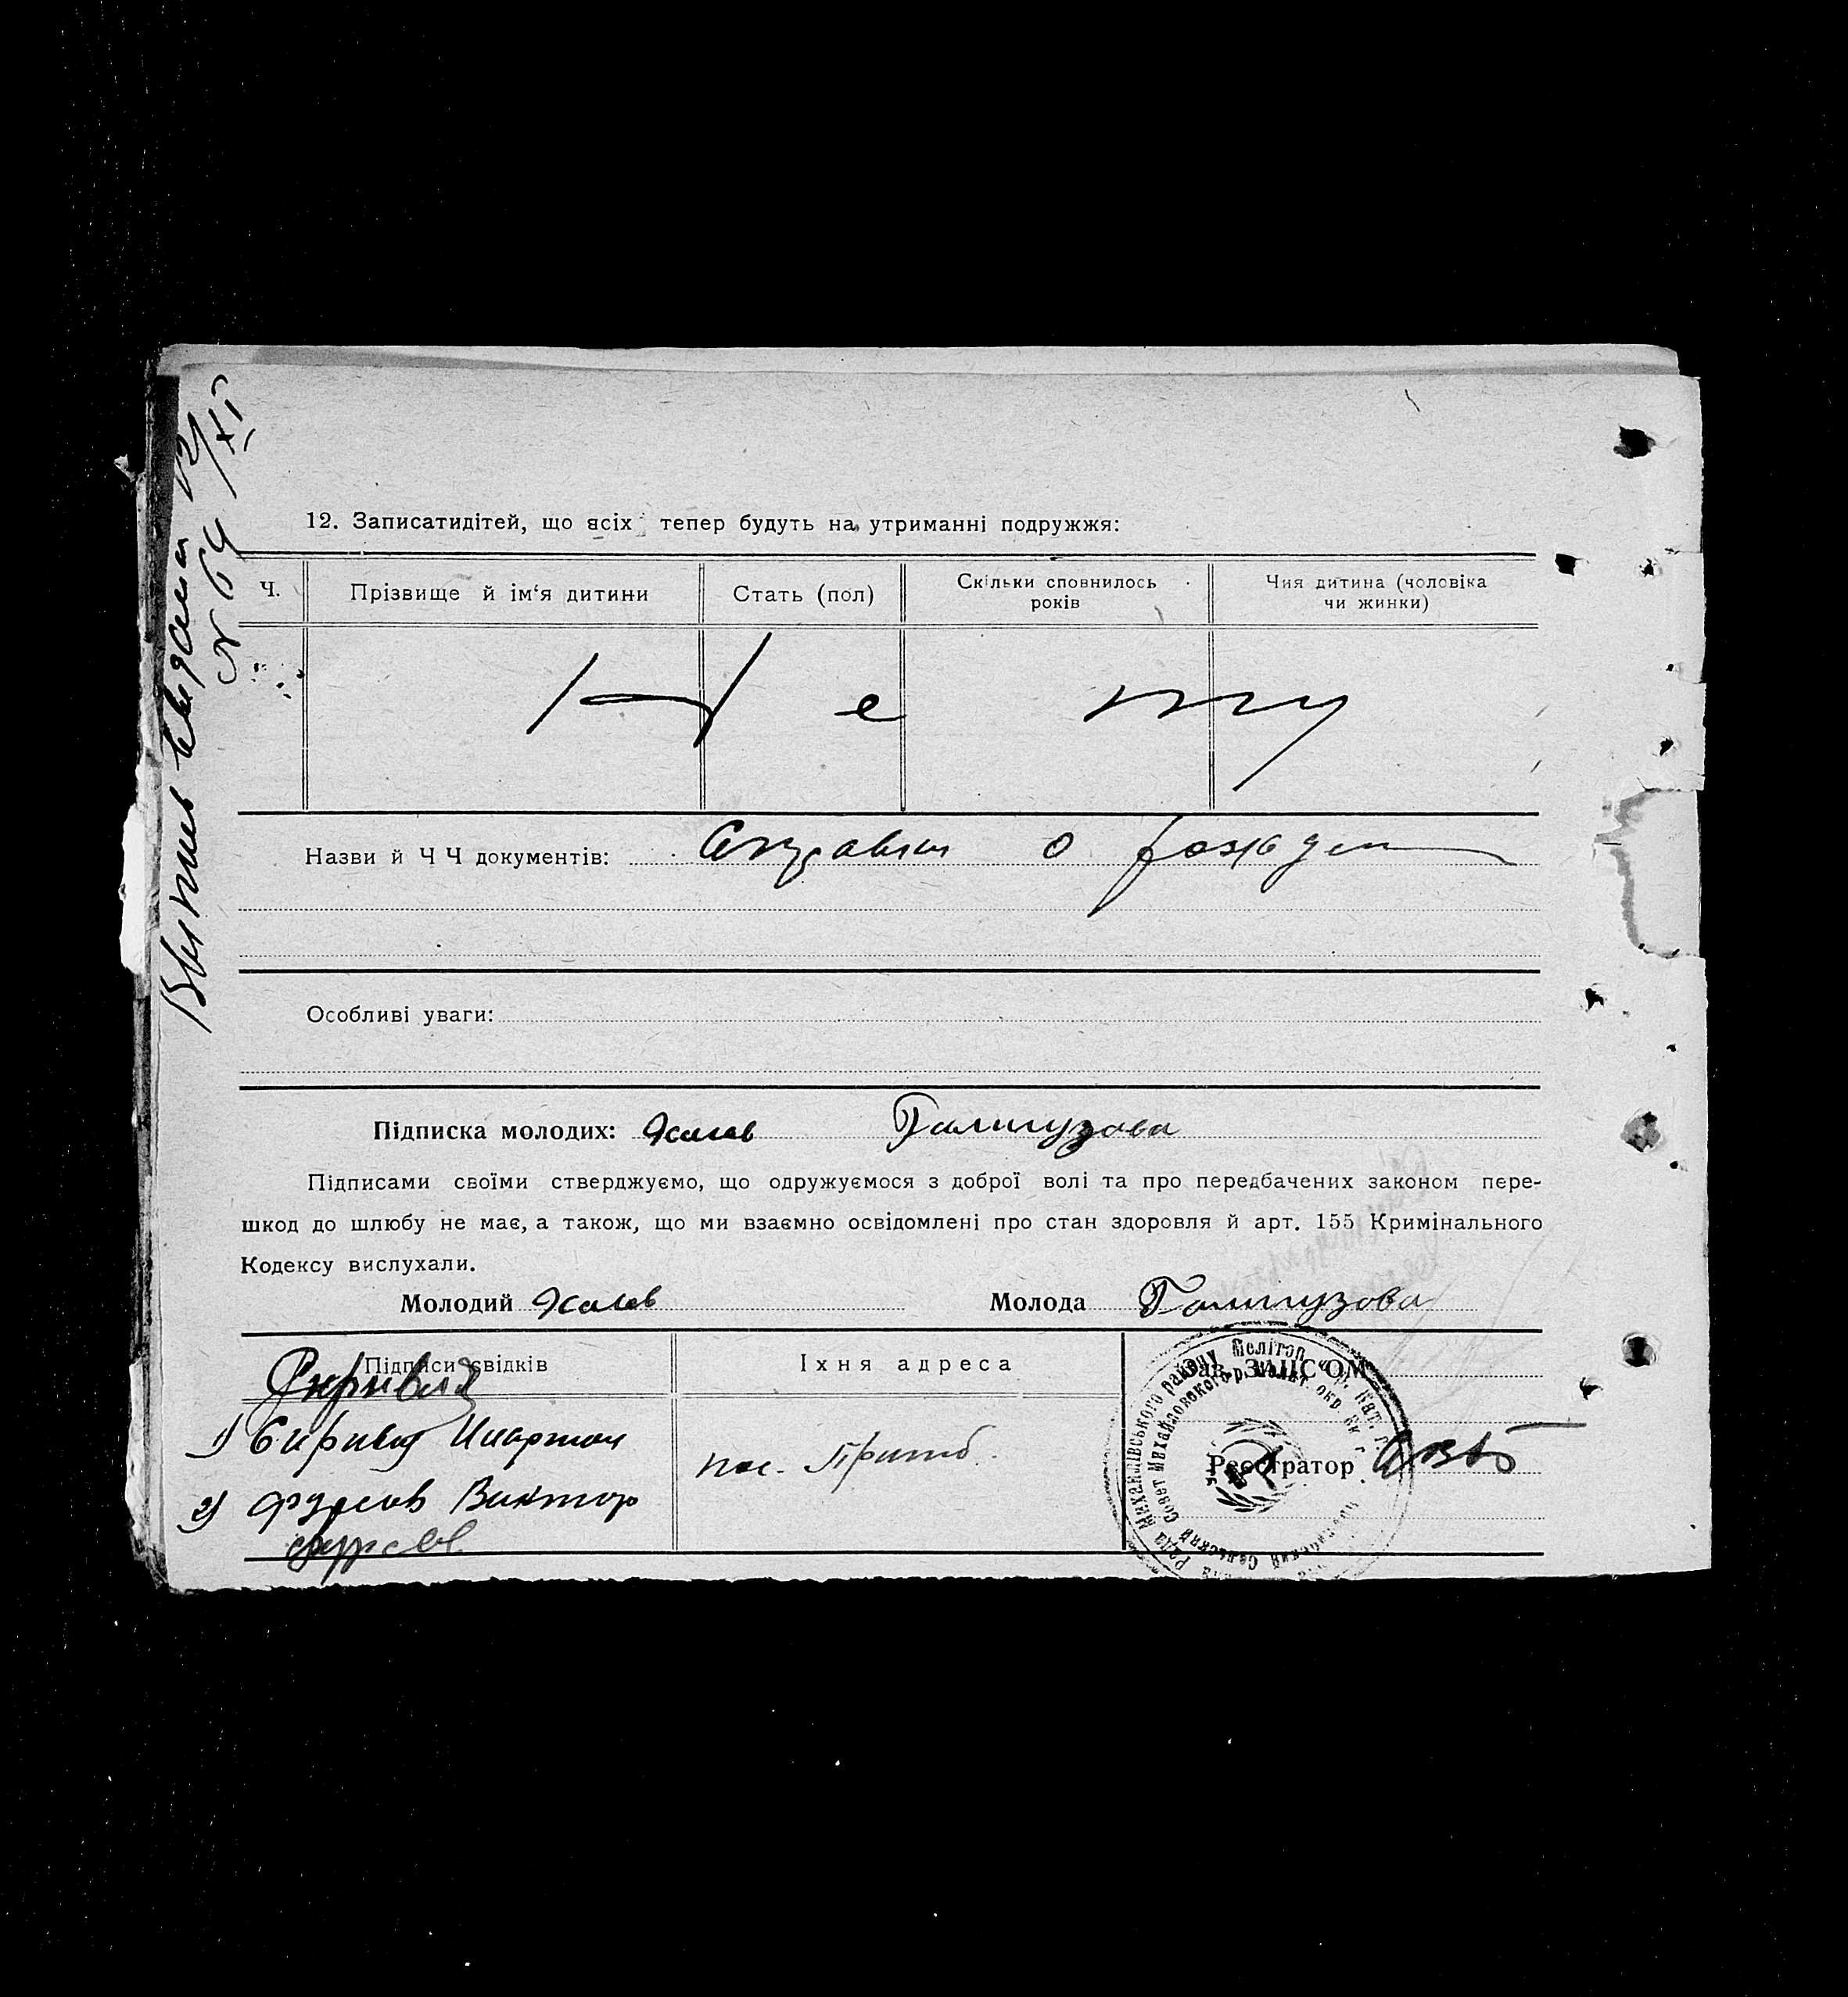 № 64 12/XI
12. Записатидітей, що всіх тепер будуть на утриманні подружжя:
Ч. Прізвище й ім‘я дитини Стать (пол) Скільки сповнилось років Чия дитина (чоловіка чи жинки)
Нету
Назви й Ч Ч документів: Справки о рожден
Особливі уваги:
Підписка молодих: Галигузова
Підписами своїми стверджуємо, що одружуємося з доброї волі та про передбачених законом пере-
шкод до шлюбу не має, а також, що ми взаємно освідомлені про стан здоровля й арт. 155 Кримінального
Кодексу вислухали.
Молодий Молода Галигузова
Підписи свідків Їхня адреса Зав. ЗАПСОМ
1)
пос. Пришиб. Реєстратор
2) Фурсов Виктор
Фурсов
Рада Михайлівського району Меліто
Сельский Совет Михайловского р.